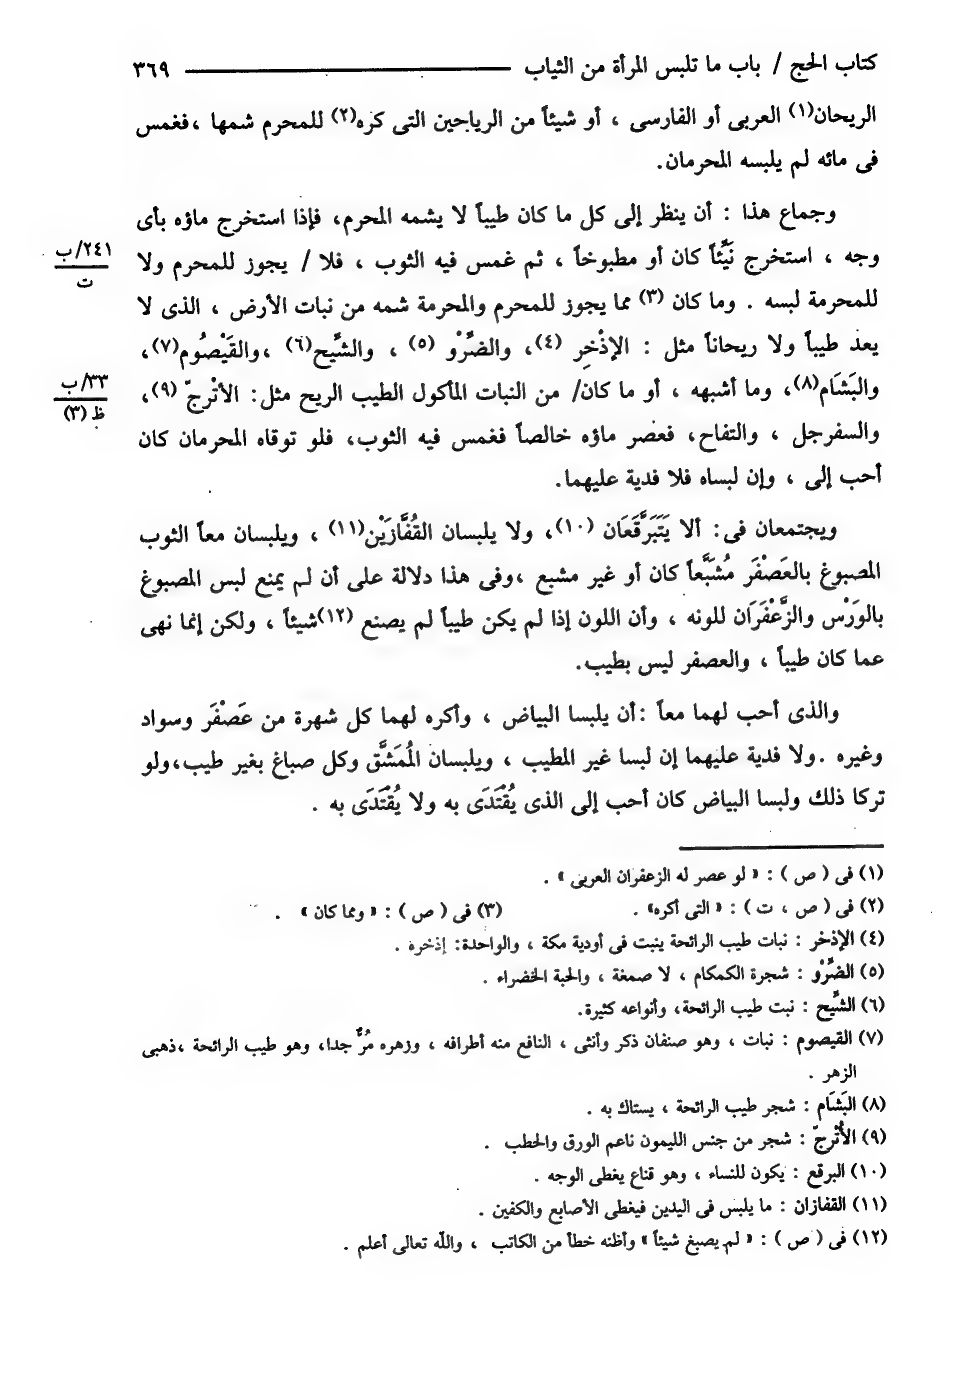 كتاب الحج / باب ما تلبس المرأة من الثياب ٣٦٩
الريحان(١) العربى أو الفارسى ، أو شيئاً من الرياحين التى كره(٢) للمحرم شمها ،فغمس
فى مائه لم يلبسه المحرمان.
وجماع هذا : أن ينظر إلى كل ما كان طيباً لا يشمه المحرم، فإذا استخرج ماؤه بأى
وجه ، استخرج نَيِّئاً كان أو مطبوخاً ، ثم غمس فيه الثوب ، فلا / يجوز للمحرم ولا
٢٤١/ب
ت
للمحرمة لبسه . وما كان (٣) مما يجوز للمحرم والمحرمة شمه من نبات الأرض ، الذى لا
يعد طيباً ولا ريحاناً مثل : الإذْخِرِ (٤)، والضَّرْو (٥) ، والشِّيح(٦) ،والقَيْصُوم(٧)،
والبَشَام(٨)، وما أشبهه ، أو ما كان/ من النبات المأكول الطيب الريح مثل: الأتْرجّ (٩)،
٣٣/ب
ظ (٣)
والسفرجل ، والتفاح، فعصر ماؤه خالصاً فغمس فيه الثوب، فلو توقاه المحرمان كان
أحب إلى ، وإن لبساه فلا فدية عليهما.
ويجتمعان فى: ألا يَتَبَرَّقَعَان (١٠)، ولا يلبسان القُفَّازَيْن(١١) ، ويلبسان معاً الثوب
المصبوغ بالعَصْفَر مُشَبَّعاً كان أو غير مشبع ،وفى هذا دلالة على أن لم يمنع لبس المصبوغ
بالوَرْس والزَّعْفَرَان للونه ، وأن اللون إذا لم يكن طيباً لم يصنع (١٢)شيئاً ، ولكن إنما نهى
عما كان طيباً ، والعصفر ليس بطيب.
والذى أحب لهما معاً :أن يلبسا البياض ، وأكره لهما كل شهرة من عَصْفَر وسواد
وغيره .ولا فدية عليهما إن لبسا غير المطيب ، ويلبسان المُمَشَّق وكل صباغ بغير طيب،ولو
تركا ذلك ولبسا البياض كان أحب إلى الذى يُقْتَدَى به ولا يُقْتَدَى به .
(١) فى ( ص ) : « لو عصر له الزعفران العربى » .
(٢) فى ( ص ، ت ) : « التى أكره» . (٣) فى ( ص ) : « ومما كان » .
(٤) الإذخر : نبات طيب الرائحة ينبت فى أودية مكة ، والواحدة: إذخرة .
(٥) الضَّرْو : شجرة الكمكام ، لا صمغة ، والحبة الخضراء .
(٦) الشِّيح : نبت طيب الرائحة، وأنواعه كثيرة.
(٧) القيصوم : نبات ، وهو صنفان ذكر وأنثى ، النافع منه أطرافه ، وزهره مُرٌّ جدا، وهو طيب الرائحة ،ذهبى
الزهر .
(٨) البَشَام : شجر طيب الرائحة ، يستاك به .
(٩) الأُتْرجّ : شجر من جنس الليمون ناعم الورق والحطب .
(١٠) البرقع : يكون للنساء ، وهو قناع يغطى الوجه .
(١١) القفازان : ما يلبس فى اليدين فيغطى الأصابع والكفين .
(١٢) فى ( ص ) : « لم يصبغ شيئاً » وأظنه خطأ من الكاتب ، والله تعالى أعلم .